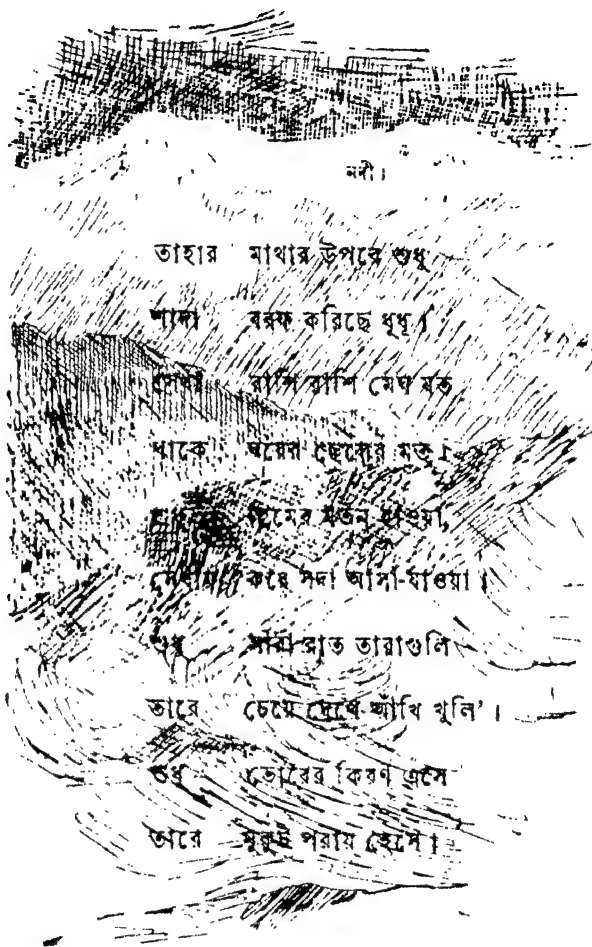 নদী।
তাহার মাথার উপরে শুধু
শাদা বরফ করিছে ধূধূ।
রাশি রাশি মেঘ যত
থাকে ঘরের ছেলের মত।
শুধু হিমের মতন হাওয়া,
সেথায় করে সদা আসা-যাওয়া।
শুধু সারা রাত তারাগুলি
তারে চেয়ে দেখে আঁখি খুলি’।
শুধু ভোরের কিরণ এসে
তারে মুকুট পরায় হেসে।